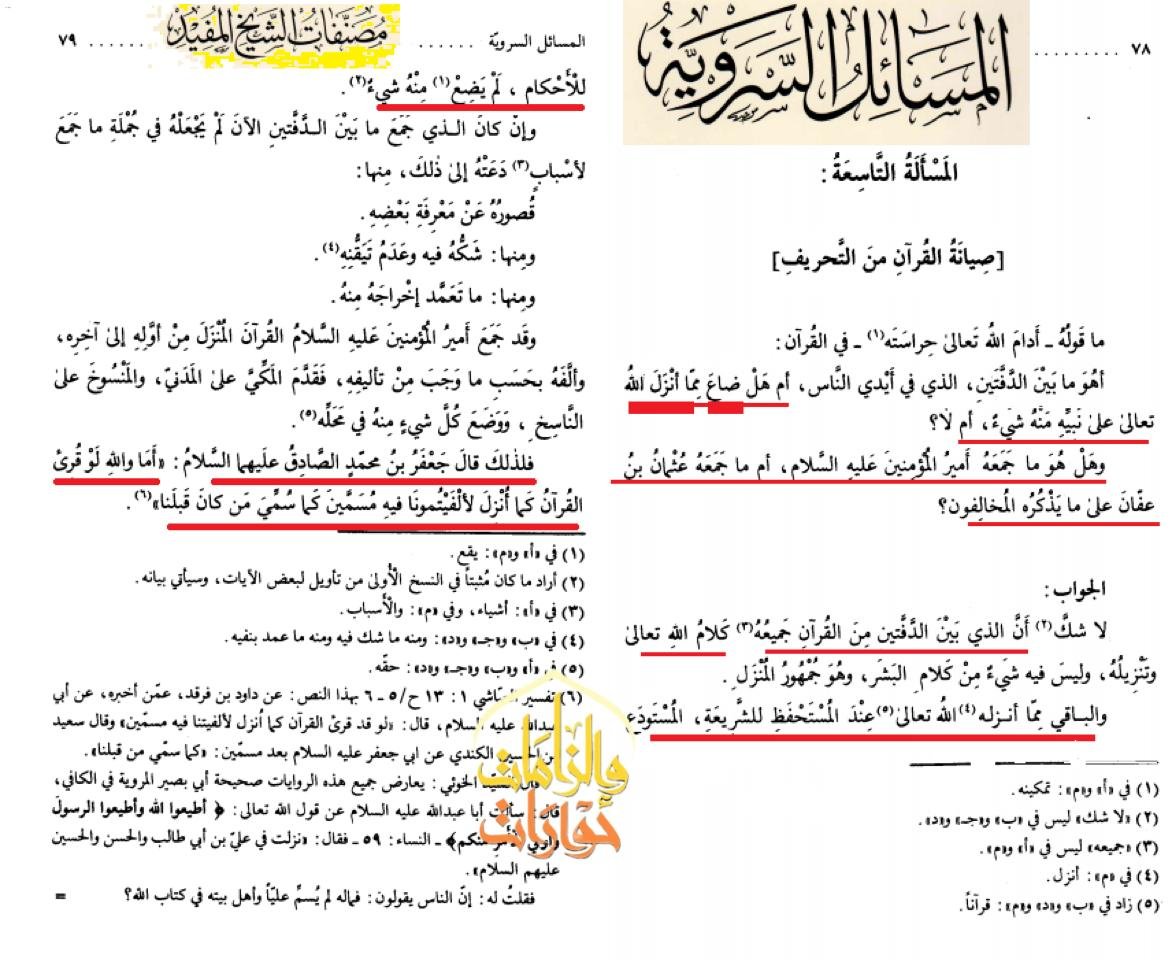 ٧٨ . . . . . . . . .
المسائل السروية
المَسْألَةُ التَّاسِعَةُ :
[صِيانَةُ القُرآنِ مِنَ التَّحريفِ]
ما قَولُهُ ـ أدامَ اللهُ تَعالىٰ حِراسَتَه(١) ـ في القُرآن :
أهُوَ ما بَيْنَ الدَّفَّتَينِ، الذي في أَيْدي النَّاس، أم هَلْ ضاعَ مِمّا أنْزَلَ اللهُ
تعالىٰ علىٰ نَبِيِّهِ مَنْهُ شَيءٌ، أم لَا؟
وهَلْ هُوَ ما جَمَعَه أميرُ المُؤمنينَ عَليهِ السَّلام، أم ما جَمَعَهُ عُثْمانُ بنُ
عفّانَ علىٰ ما يَذْكُرُه المُخالِفون؟
الجواب:
لا شكَّ(٢) أنَّ الذي بَيْنَ الدَّفَّتَين مِنَ القُرآنِ جَميعُهُ(٣) كَلامُ اللهِ تعالىٰ
وتَنْزيلُهُ، وليسَ فيه شَيءٌ مِنْ كَلامِ البَشَر، وهُوَ جُمْهورُ المُنْزَلِ .
والبـاقي مِمّا أنـزله(٤) اللهُ تعالىٰ(٥) عِنْدَ المُسْتَحْفَظِ للشَّريعَةِ، المُسْتَودَع
(١) في «أ» و«م»: تمكينه.
(٢) «لا شك» ليس في «ب» و«جـ» و«د».
(٣) «جميعه» ليس في «أ» و«م».
(٤) في «م»: أنزل.
(٥) زاد في «ب» و«د» و«م»: قرآناً.
المسائل السرويّة . . . . . . مصنفات الشيخ المفيد . . . . . . ٧٩
للْأَحْكامِ ، لَمْ يَضِعْ(١) مِنْهُ شيءٌ(٢) .
وإنْ كانَ الـذي جَمَعَ ما بَيْنَ الـدَّفَّتينِ الآنَ لَمْ يَجْعَلْهُ في جُمْلَةِ ما جَمَعَ
لأسْبابٍ(٣) دَعَتْهُ إلىٰ ذٰلكَ، مِنها:
قُصورُهُ عَنْ مَعْرِفَةِ بَعْضِهِ .
ومِنها: شَكُّهُ فيه وعَدَمُ تَيَقُّنِهِ(٤) .
ومِنها: ما تَعَمَّد إخْراجَهُ مِنهُ .
وقَد جَمَعَ أميرُ المُؤمنينَ عَليهِ السَّلامُ القُرآنَ المُنْزَلَ مِنْ أوَّلِهِ إلىٰ آخِرِه،
وألَّفَهُ بحَسَبِ ما وَجَبَ مِنْ تأليفِهِ، فَقَدَّمَ المَكِّيَّ علىٰ المَدَنيّ، والمَنْسُوخَ علىٰ
النَّاسِخِ ، وَوَضَعَ كُلَّ شَيءٍ مِنهُ في مَحَلِّه(٥) .
فلذلكَ قالَ جَعْفَرُ بنُ محمّدٍ الصَّادِقُ عَلَيهما السَّلامُ : «أَمَا والله لَوْ قُرِئ
القُرآنُ كَما أُنْزِلَ لألْفَيْتُمونا فيه مُسَمَّينَ كَما سُمِّيَ مَن كانَ قَبلَنا»(٦) .
(١) في «أ» و«م»: يقع.
(٢) أراد ما كان مُثبتاً في النسخ الأُولىٰ من تأويل لبعض الآيات، وسيأتي بيانه.
(٣) في «أ»: أشياء، وفي «م»: والأسباب.
(٤) في «ب» و«جـ» و«د»: ومنه ما شك فيه ومنه ما عمد بنفيه.
(٥) في «أ» و«ب» و«جـ» و«د»: حقّه.
(٦) تفسير العياشي ١ : ١٣ ح/٥ ـ ٦ بهذا النص: عن داود بن فرقد، عمّن أخبره، عن أبي
عبدالله عليه السلام، قال: «لو قد قرئ القرآن كما أنزل لألفيتنا فيه مسمّين» وقال سعيد
بن الحسين الكندي عن ابي جعفر عليه السلام بعد مسمّين: «كما سمّي من قبلنا».
قال السيّد الخوئي: يعارض جميع هذه الروايات صحيحة أبي بصير المروية في الكافي،
قال: سألت أبا عبدالله عليه السلام عن قول الله تعالى: ﴿ أطيعوا الله وأطيعوا الرسولَ
وأُولي الأمر منكم﴾ ـ النساء: ٥٩ ـ فقال: «نزلت في عليّ بن أبي طالب والحسن والحسين
عليهم السلام».
فقلتُ له: إنّ الناس يقولون: فماله لم يُسمِّ عليّاً وأهل بيته في كتاب الله؟ =
والزامات
حوارات